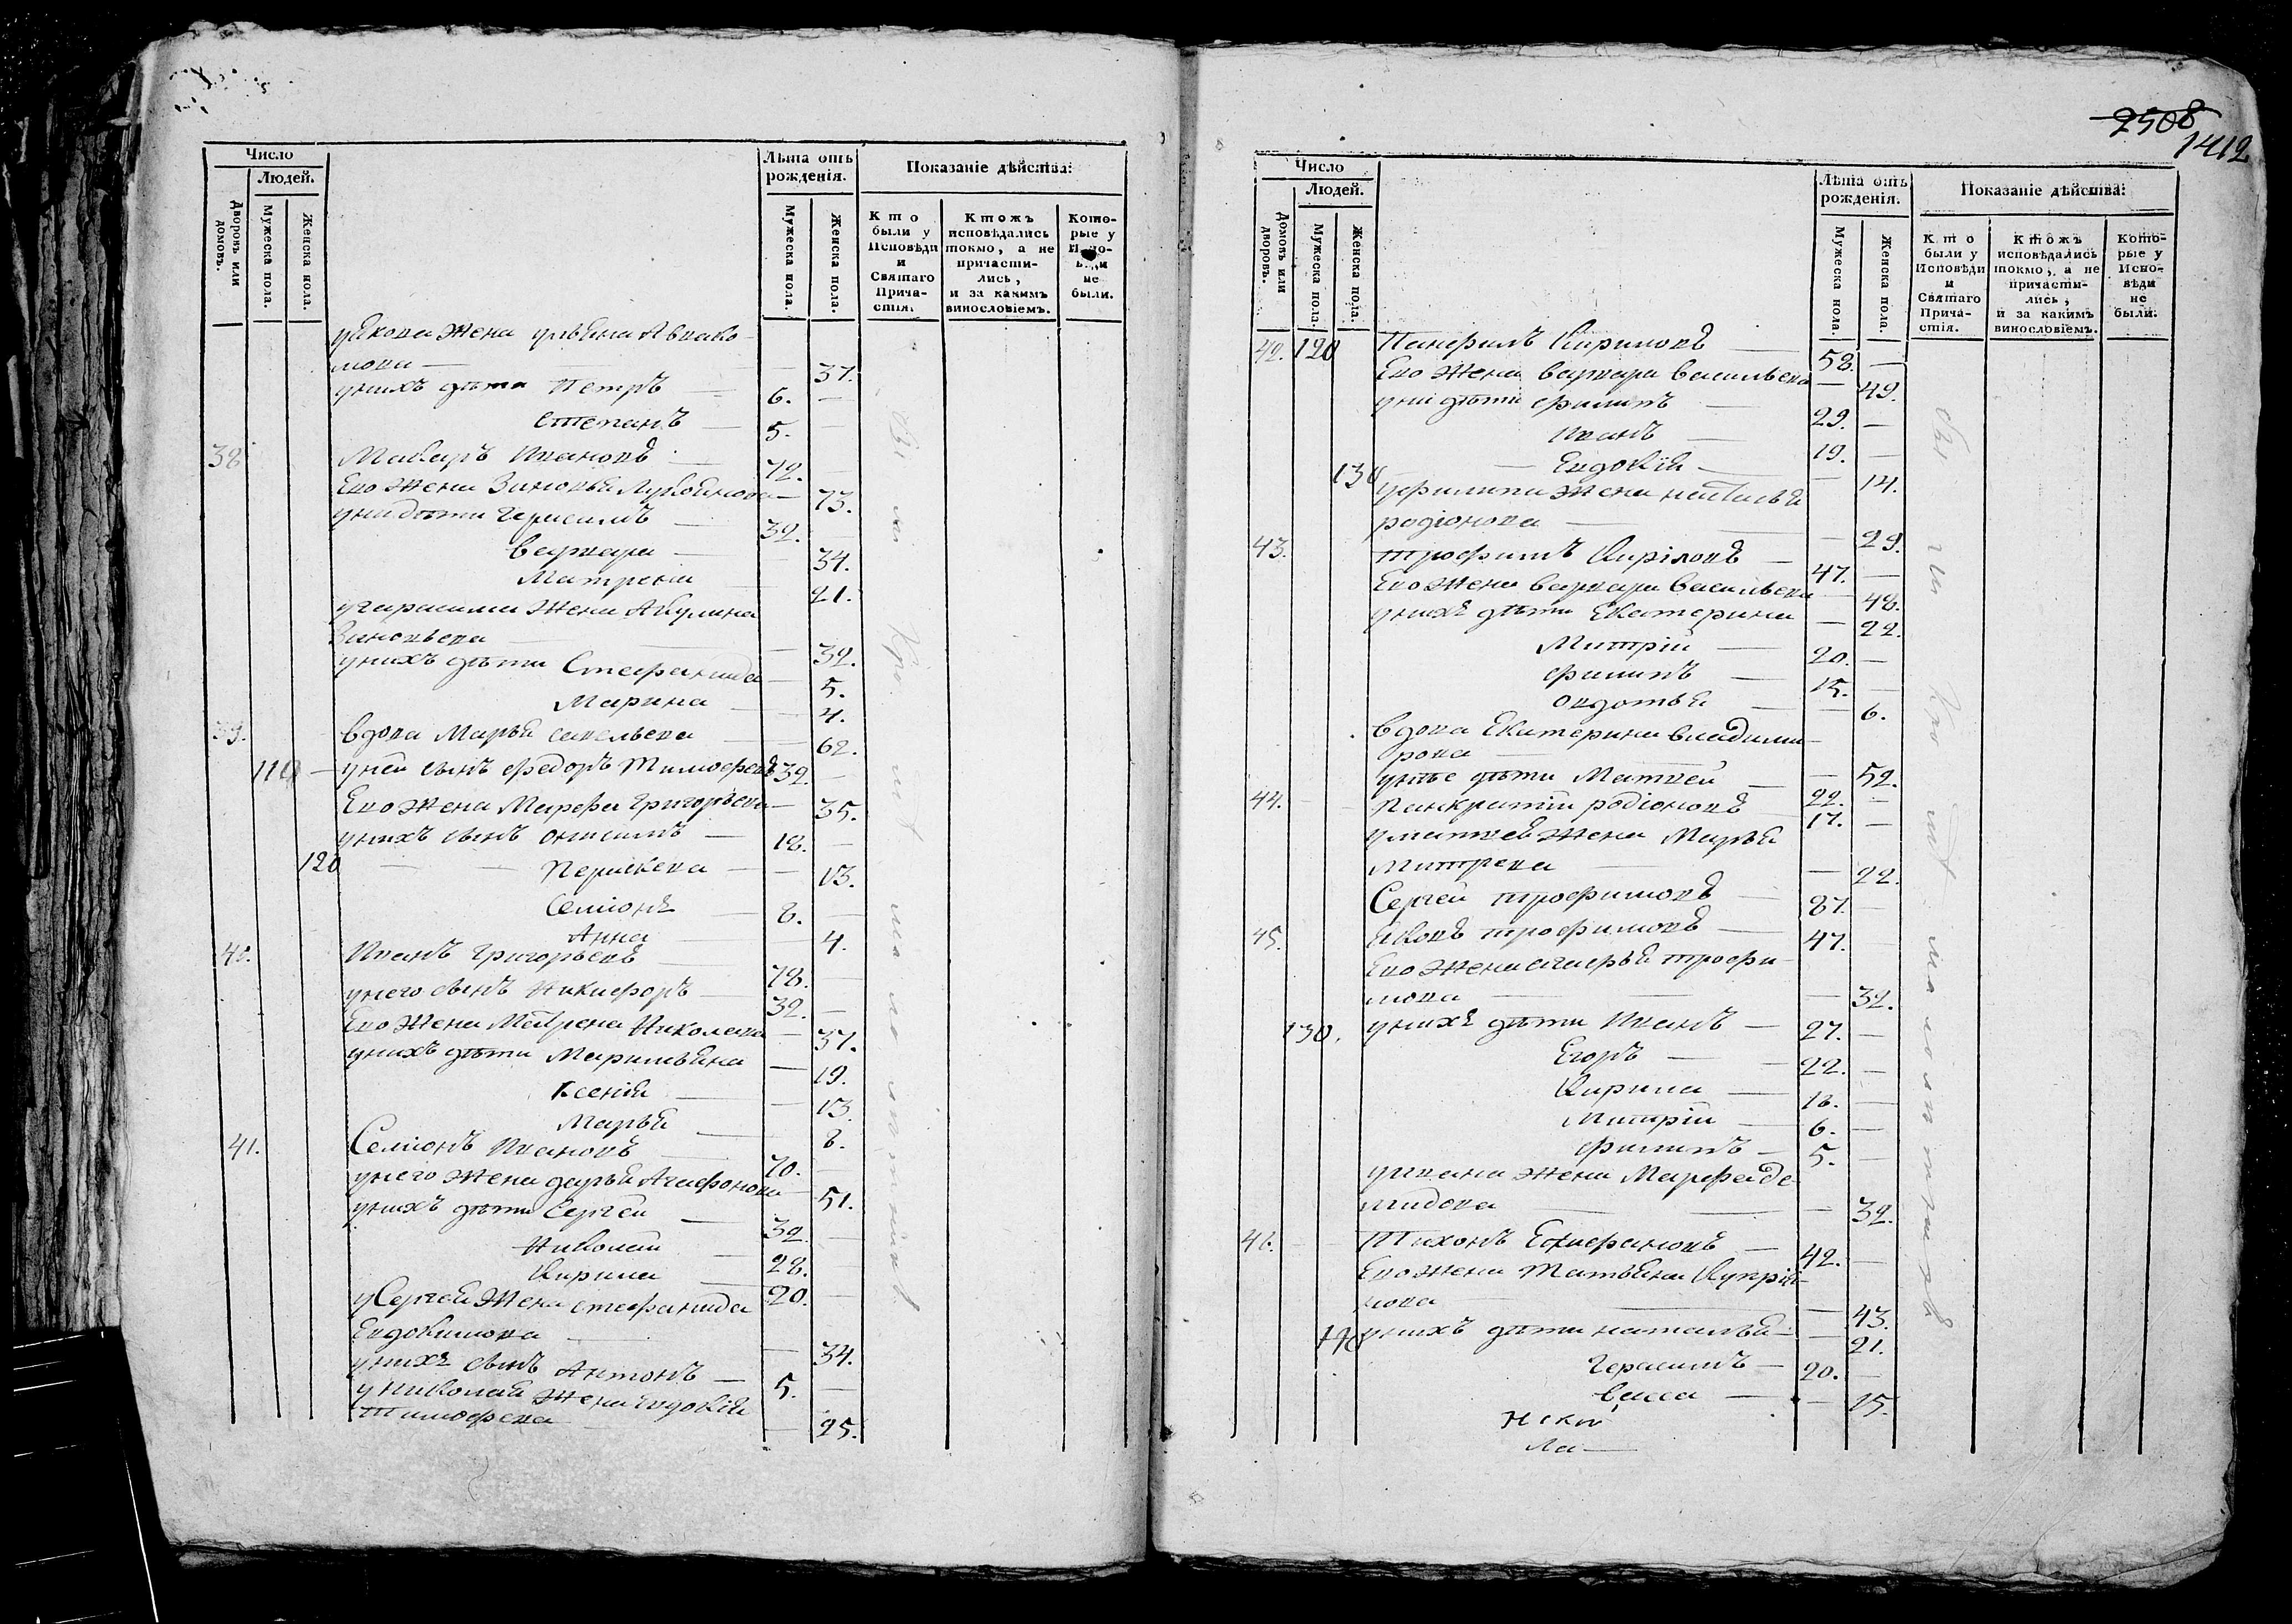 Число
Людей.
Дворовъ или домовъ.
Мужеска пола.
Женска пола.
Лѣта отъ рожденія.
Мужеска пола.
Женска пола.
Показаніе дѣйства:
Кто были у Исповѣди и Святаго Причастія.
Ктожъ исповѣдались токмо, а не причастились, и за какимъ винословіемъ.
Которые у Исповѣди не были.
жена
мова — 37.
унихъ дѣти Петръ — 6.
Степанъ — 5.
38 Макаръ Ивановъ — 72.
Ево жена Зиновья — 73.
уни дѣти Герасимъ — 32.
Варвара — 34.
Матрена 21.
угарасима жена Акулина
Зиновьева — 32.
унихъ дѣти Стефанида — 5.
Марина — 4.
39. Вдова Марья савельева — 62.
110 — уней сынъ Федоръ Тимофеевъ 32. —
Ево жена Марфа Григорьева — 35.
унихъ сынъ онисимъ — 18. —
120 — — Перасковя — 13.
Семіонъ 8. —
Анна 4.
40. Иванъ Григорьевъ — 78. —
унего сынъ Никифоръ — 32. —
Ево жена Матрена Николаева — 37.
унихъ дѣти — 19.
Ксенія — 13.
Марья — 8.
41. Семіонъ Ивановъ — 70. —
унего жена дарья Агафонова — 51.
унихъ дѣти Сергей — 32. —
Николай — 28. —
Кирила — 20. —
уСергея жена стефанида
Евдокимова — 34.
унихъ сынъ Антонъ — 5. —
уНиколая жена Евдокія
Тимофева — 25.
2508
1412
Число
Людей.
Домовъ или дворовъ.
Мужеска пола.
Женска пола.
Лѣта отъ рожденія.
Мужеска пола.
Женска пола.
Показаніе дѣйства:
Кто были у Исповѣди и Святаго Причастія.
Ктожъ исповѣдались токмо, а не причастились, и за какимъ винословіемъ.
Которые у Исповѣди не были.
42. 120 Панфилъ Кириловъ — 58. —
Ево жена варвара васильева — 49.
уни дѣти филипъ — 29. —
Иванъ — 19. —
— Евдокія — 14.
130 уфилипа жена наталья
родіонова — 29.
43. трофимъ Кириловъ — 47. —
Ево жена варвара васильева — 48.
унихъ дѣти Екатерина — 22.
Митрій — 20. —
филипъ — 15. —
овдотья — 6.
вдова Екатерина владими-
рова — 52.
унее дѣти Матвей — 22. —
44. Панкратій родіоновъ 17. —
уматвея жена Марья
Митрева — 22.
Сергей трофимовъ — 87. —
45. Яковъ трофимовъ — 47. —
Ево жена трофи-
мова — 32.
130. унихъ дѣти Иванъ — 27. —
Егоръ — 22. —
Кирила — 18. —
Митрій — 6. —
филипъ — 5. —
уивана жена Марфа де-
мидова — 32.
46. Тихонъ — 42. —
Ево жена татьяна
нова — 43.
140 унихъ дѣти наталья — 21.
Герасимъ — 20. —
васса — 15.